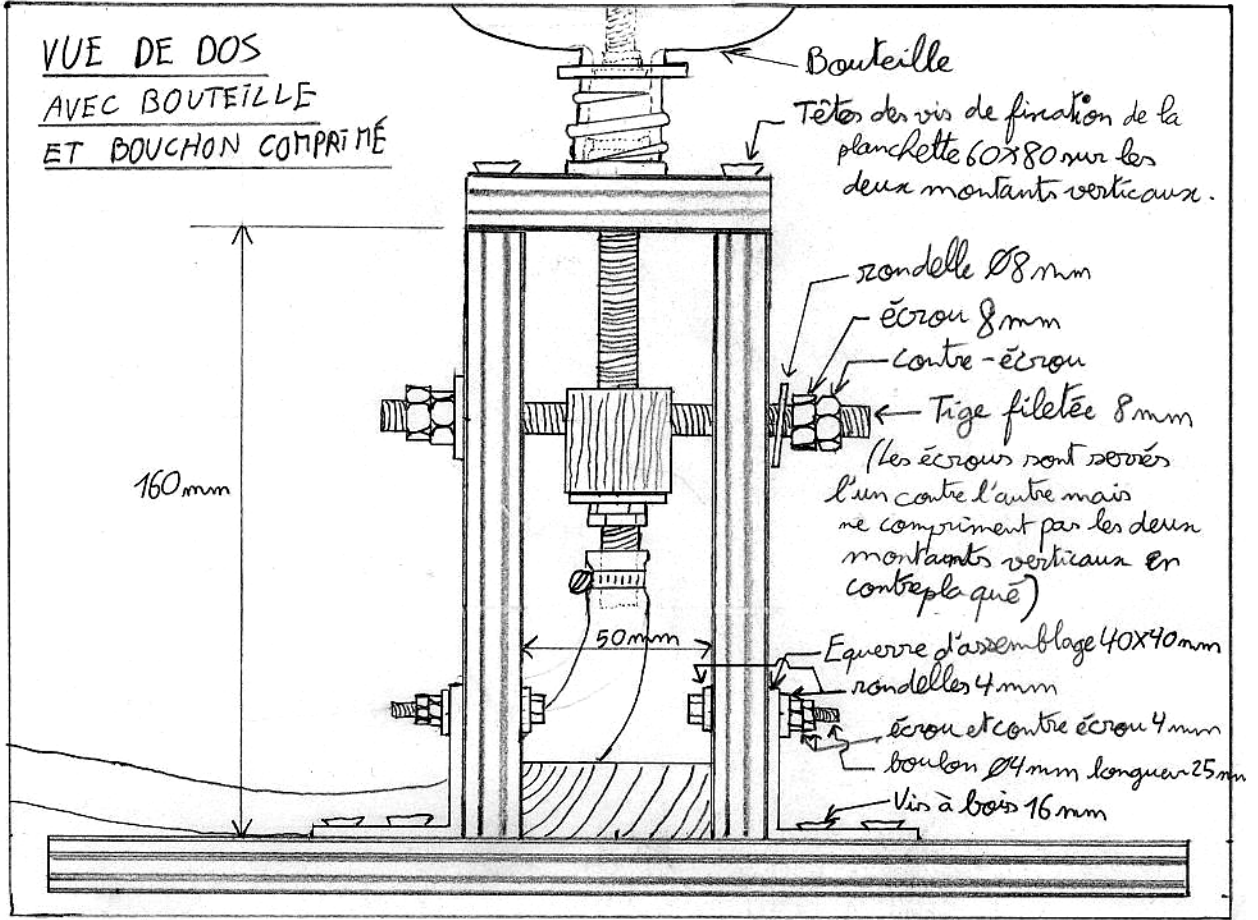 VUE DE DOS
AVEC BOUTEILLE
ET BOUCHON COMPRIMÉ
Bouteille
Têtes des vis de fixation de la
planchette 60x80 sur les
deux montants verticaux.
rondelle Ø8mm
écrou 8mm
contre-écrou
Tige filetée 8mm
(Les écrous sont serrés
l'un contre l'autre mais
ne compriment pas les deux
montants verticaux en
contreplaqué)
160mm
50mm
Equerre d'assemblage 40X40mm
rondelles 4mm
écrou et contre écrou 4mm
boulon Ø4mm longueur 25mm
Vis à bois 16mm